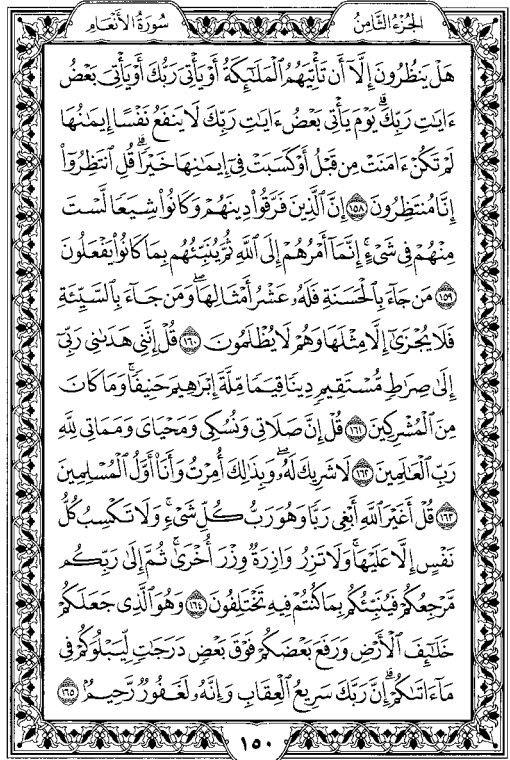 الجزء الثامن
سورة الأنعام
هَلْ يَنظُرُونَ إِلَّا أَن تَأْتِيَهُمُ الْمَلَٰٓئِكَةُ أَوْ يَأْتِىَ رَبُّكَ أَوْ يَأْتِىَ بَعْضُ
ءَايَٰتِ رَبِّكَ ۗ يَوْمَ يَأْتِى بَعْضُ ءَايَٰتِ رَبِّكَ لَا يَنفَعُ نَفْسًا إِيمَٰنُهَا
لَمْ تَكُنْ ءَامَنَتْ مِن قَبْلُ أَوْ كَسَبَتْ فِىٓ إِيمَٰنِهَا خَيْرًا ۗ قُلِ انتَظِرُوٓا۟
إِنَّا مُنتَظِرُونَ ١٥٨ إِنَّ الَّذِينَ فَرَّقُوا۟ دِينَهُمْ وَكَانُوا۟ شِيَعًا لَّسْتَ
مِنْهُمْ فِى شَىْءٍ ۚ إِنَّمَآ أَمْرُهُمْ إِلَى اللَّهِ ثُمَّ يُنَبِّئُهُم بِمَا كَانُوا۟ يَفْعَلُونَ
١٥٩ مَن جَآءَ بِالْحَسَنَةِ فَلَهُۥ عَشْرُ أَمْثَالِهَا ۖ وَمَن جَآءَ بِالسَّيِّئَةِ
فَلَا يُجْزَىٰٓ إِلَّا مِثْلَهَا وَهُمْ لَا يُظْلَمُونَ ١٦٠ قُلْ إِنَّنِى هَدَىٰنِى رَبِّىٓ
إِلَىٰ صِرَٰطٍ مُّسْتَقِيمٍ دِينًا قِيَمًا مِّلَّةَ إِبْرَٰهِيمَ حَنِيفًا ۚ وَمَا كَانَ
مِنَ الْمُشْرِكِينَ ١٦١ قُلْ إِنَّ صَلَاتِى وَنُسُكِى وَمَحْيَاىَ وَمَمَاتِى لِلَّهِ
رَبِّ الْعَٰلَمِينَ ١٦٢ لَا شَرِيكَ لَهُۥ ۖ وَبِذَٰلِكَ أُمِرْتُ وَأَنَا۠ أَوَّلُ الْمُسْلِمِينَ
١٦٣ قُلْ أَغَيْرَ اللَّهِ أَبْغِى رَبًّا وَهُوَ رَبُّ كُلِّ شَىْءٍ ۚ وَلَا تَكْسِبُ كُلُّ
نَفْسٍ إِلَّا عَلَيْهَا ۚ وَلَا تَزِرُ وَازِرَةٌ وِزْرَ أُخْرَىٰ ۚ ثُمَّ إِلَىٰ رَبِّكُم
مَّرْجِعُكُمْ فَيُنَبِّئُكُم بِمَا كُنتُمْ فِيهِ تَخْتَلِفُونَ ١٦٤ وَهُوَ الَّذِى جَعَلَكُمْ
خَلَٰٓئِفَ الْأَرْضِ وَرَفَعَ بَعْضَكُمْ فَوْقَ بَعْضٍ دَرَجَٰتٍ لِّيَبْلُوَكُمْ فِى
مَآ ءَاتَىٰكُمْ ۗ إِنَّ رَبَّكَ سَرِيعُ الْعِقَابِ وَإِنَّهُۥ لَغَفُورٌ رَّحِيمٌۢ ١٦٥
١٥٠